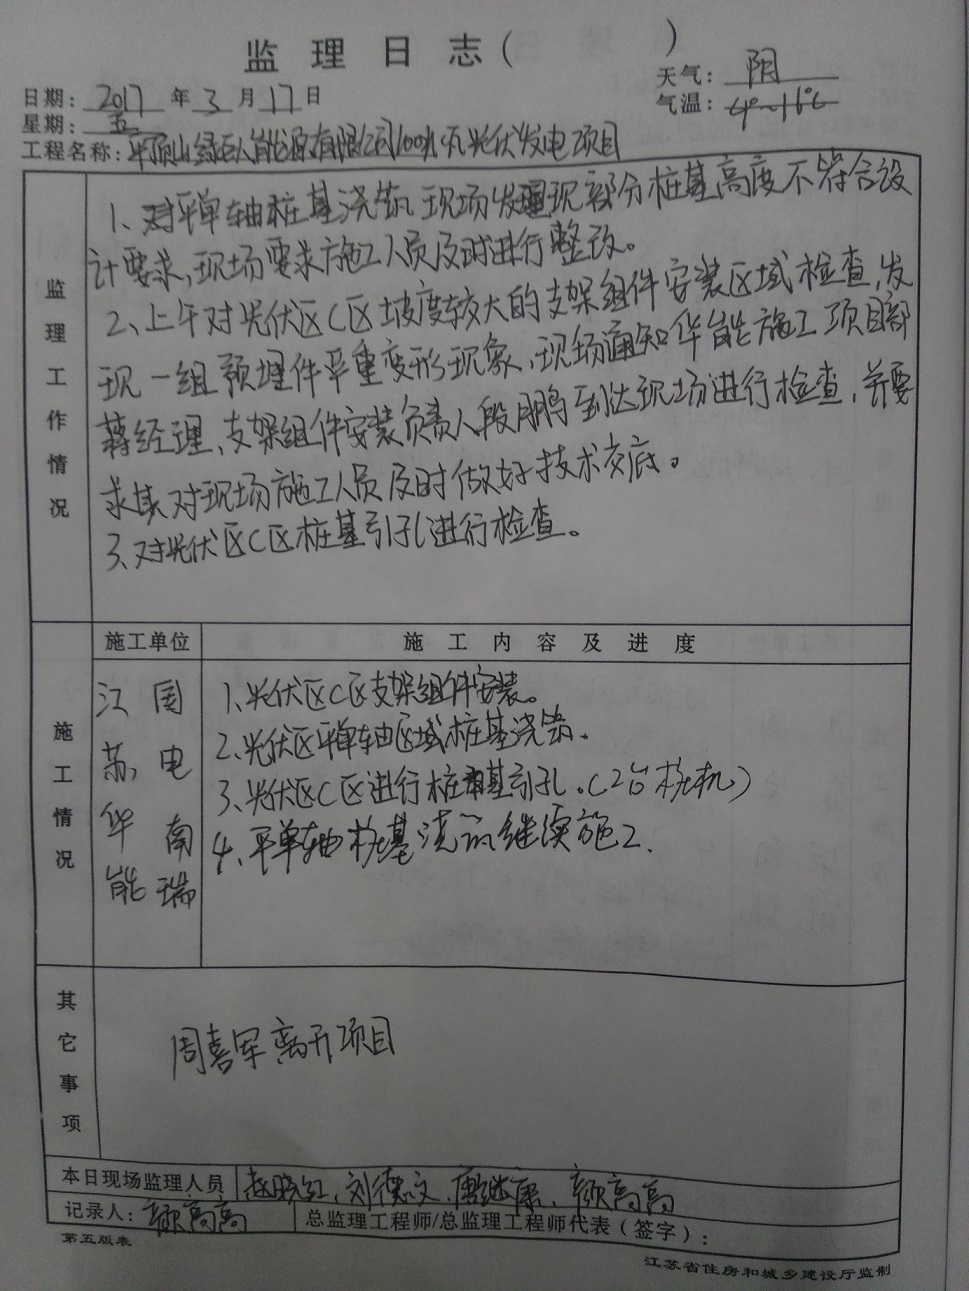 监理日志( )
日期: 2017 年 3 月 17 日 天气: 阴
星期: 五 气温: 4℃~16℃
工程名称: 平顶山绿巨人能源有限公司100兆瓦光伏发电项目
监理工作情况
1、对平单轴桩基浇筑现场发现部分桩基高度不符合设
计要求,现场要求施工人员及时进行整改。
2、上午对光伏区C区坡度较大的支架组件安装区域检查,发
现一组预埋件严重变形现象,现场通知华能施工项目部
蒋经理、支架组件安装负责人段鹏到达现场进行检查,并要
求其对现场施工人员及时做好技术交底。
3、对光伏区C区桩基引孔进行检查。
施工单位 施工内容及进度
施工情况
江苏华能
国电南瑞
1、光伏区C区支架组件安装。
2、光伏区平单轴区域桩基浇筑.
3、光伏区C区进行桩基引孔.(2台桩机)
4、平单轴桩基浇筑继续施工.
其它事项
周喜军离开项目
本日现场监理人员 赵晓红、刘德文、唐继康、颜高高
记录人: 颜高高 总监理工程师/总监理工程师代表(签字):
第五版表 江苏省住房和城乡建设厅监制